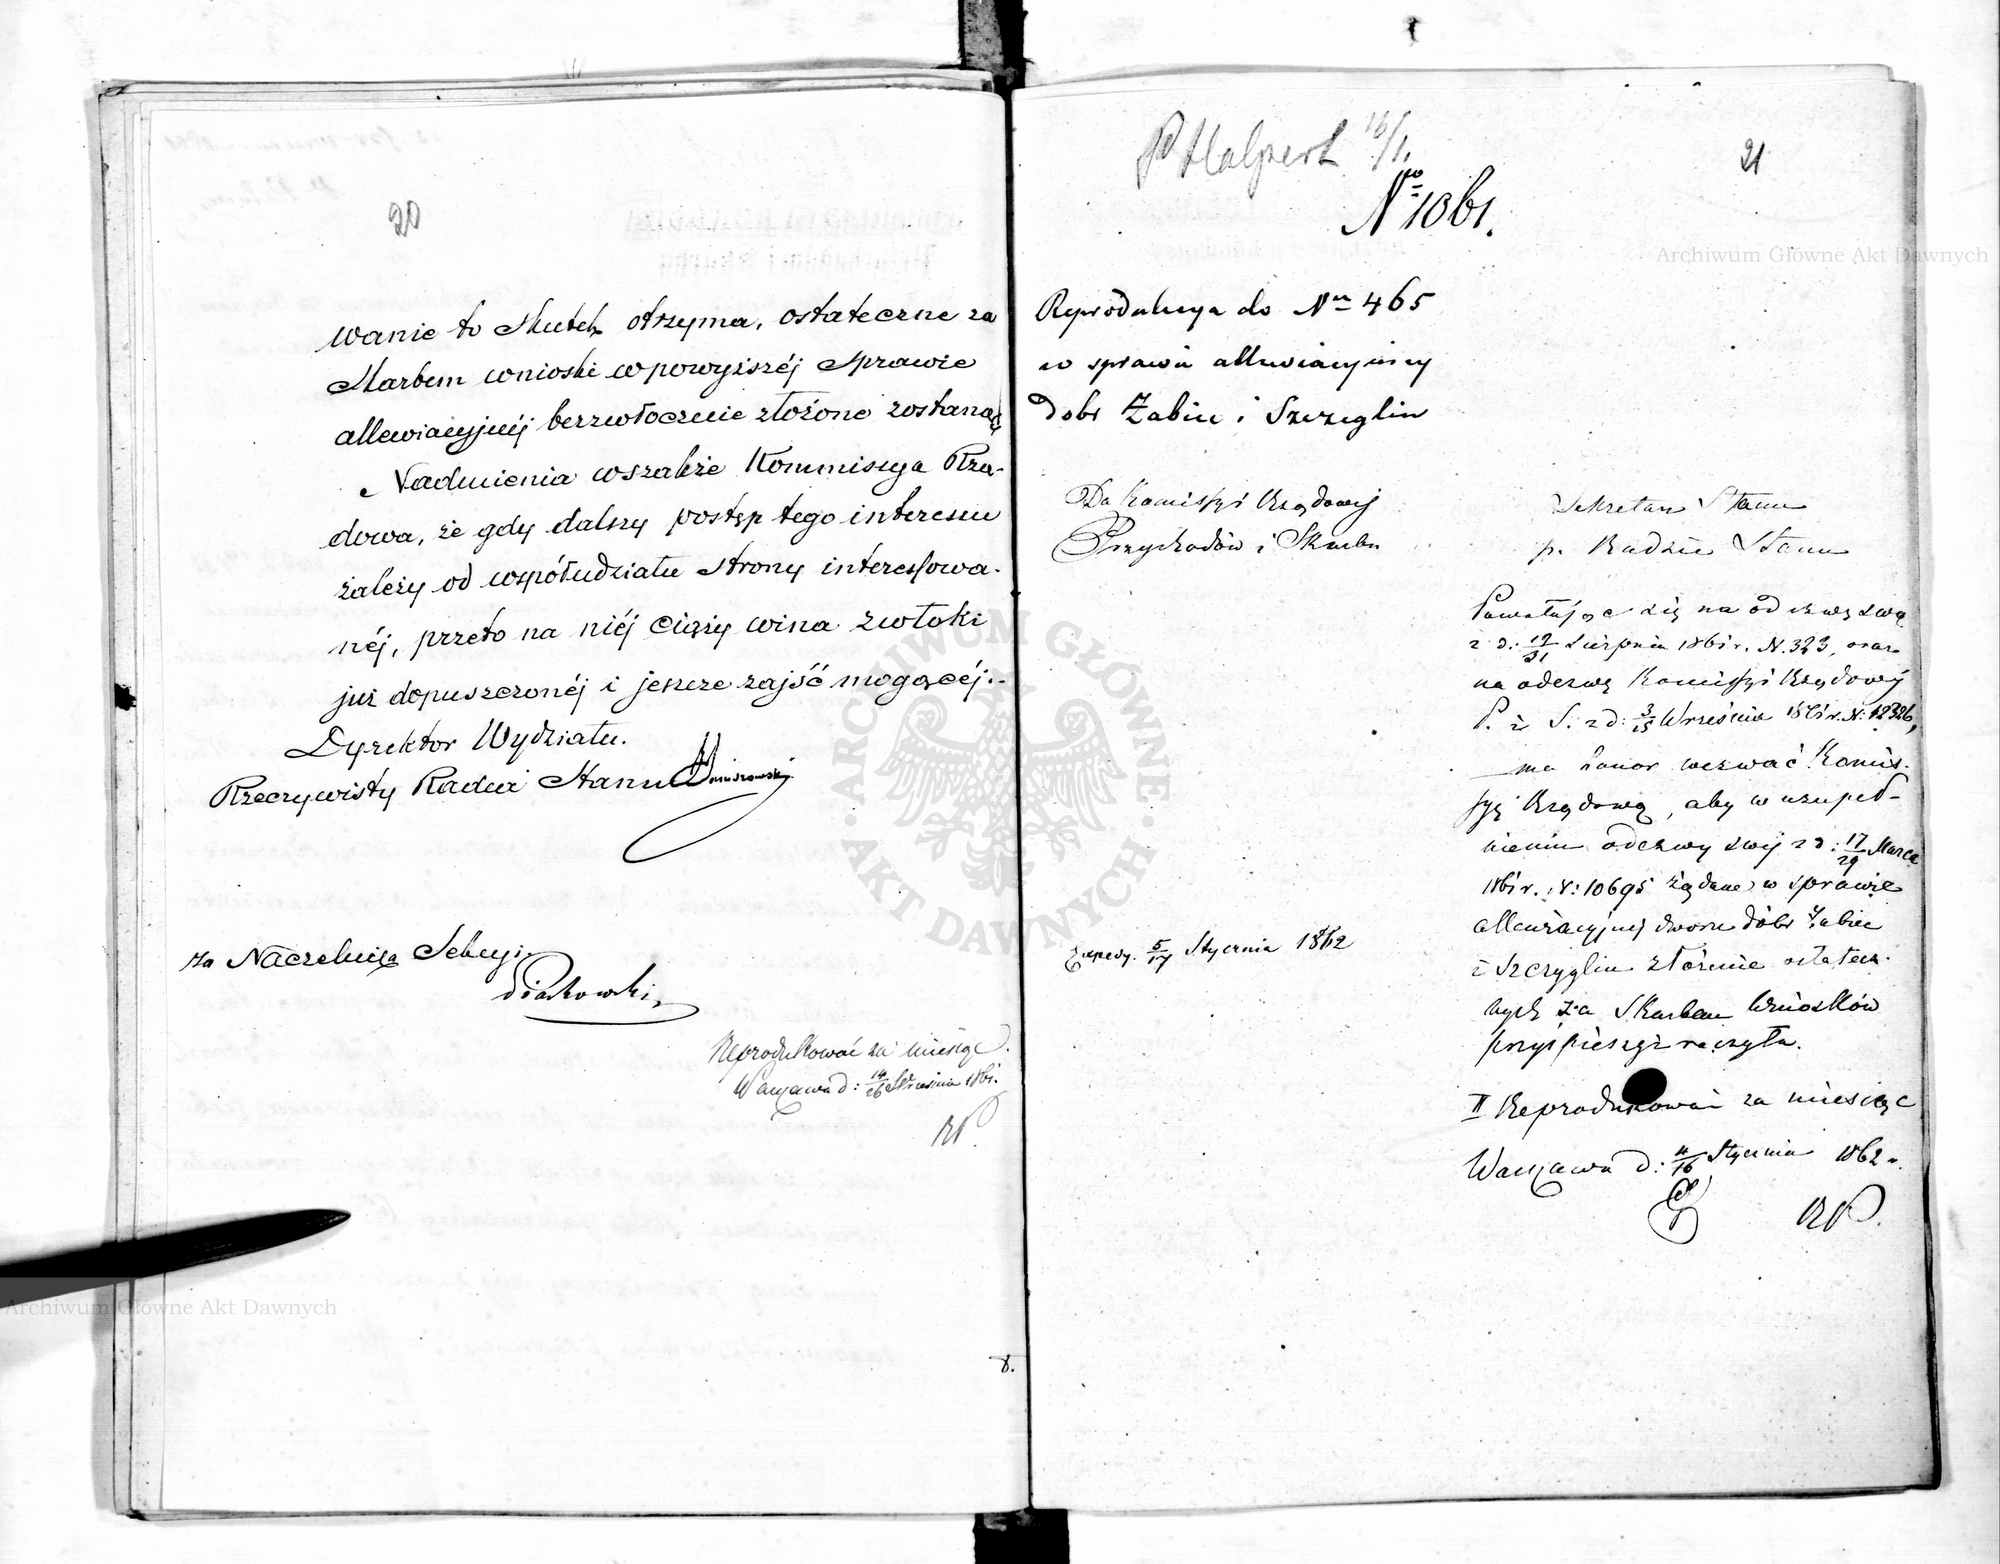 20
wanie to skutek otrzyma, ostateczne za
Skarbem wnioski w powyższéj sprawie
allewiacyjnéj bezzwłocznie złożone zostaną
Nadmienia wszakże Kommissya Rzą-
dowa, że gdy dalszy postęp tego interesu
zależy od współudziału strony interessowa-
néj, przeto na niéj ciąży wina zwłoki
już dopuszczonéj i jeszcze zajść mogącéj.
Dyrektor Wydziału.
Rzeczywisty Radca Stanu
za Naczelnika Sekcyi
Piaskowski
Reprodukować za miesiąc.
Warszawa d: 14/26 Września 1861.
8.
P Halpert 16/1.
21
No 1061.
Reprodukcya do Nru 465
w sprawie allewiacyjnéy
dobr Żabin i Szczeglin
Do Komissyi Rządowéj
Przychodów i Skarbu
Expedy. 5/17 Stycznia 1862
Sekretarz Stanu
p. Radzie Stanu
Powołując się na odezwę swą
z d. 19/31 Sierpnia 1861 r. N. 323, oraz
na odezwę Komissyi Rządowéj
P. i S. z d: 3/15 Września 1861 r. N: 12326,
ma honor wezwać Komis-
syę Rządową, aby w uzupeł-
nieniu odezwy swéj z d: 17/29 Marca
1861 r. N: 10695 żądane w sprawie
allewiacyjnéj dworu dóbr Żabin
i Szczyglin złożenie ostatecz-
nych za Skarbem Wniosków
przyśpieszyć raczyła.
II Reprodukować za miesiąc
Warszawa d: 4/16 Stycznia 1862 r.
Archiwum Główne Akt Dawnych
ARCHIWUM GŁÓWNE
AKT DAWNYCH
Archiwum Główne Akt Dawnych